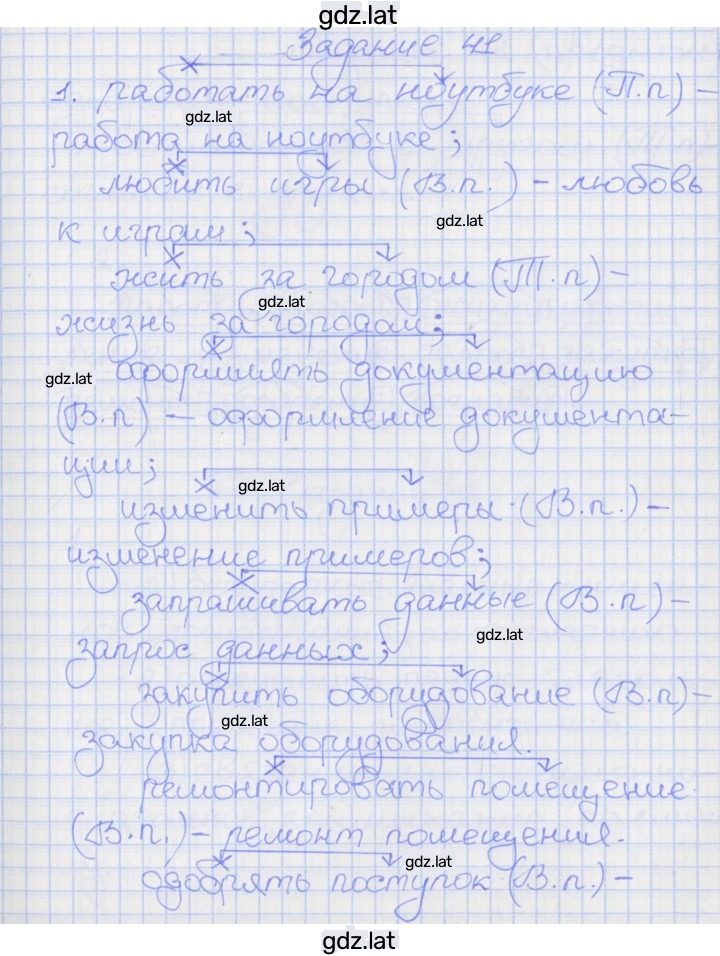 gdz.lat
Задание 41
1. работать на ноутбуке (П.п) -
gdz.lat
работа на ноутбуке;
любить игры (В.п.) - любовь
gdz.lat
к играм;
жить за городом (Т.п) -
gdz.lat
жизнь за городом;
gdz.lat оформлять документацию
(В.п) - оформление документа-
ции;
gdz.lat
изменить примеры (В.п.) -
изменение примеров;
запрашивать данные (В.п) -
gdz.lat
запрос данных;
закупить оборудование (В.п) -
gdz.lat
закупка оборудования.
ремонтировать помещение
(В.п.) - ремонт помещения.
gdz.lat
одобрять поступок (В.п.) -
gdz.lat